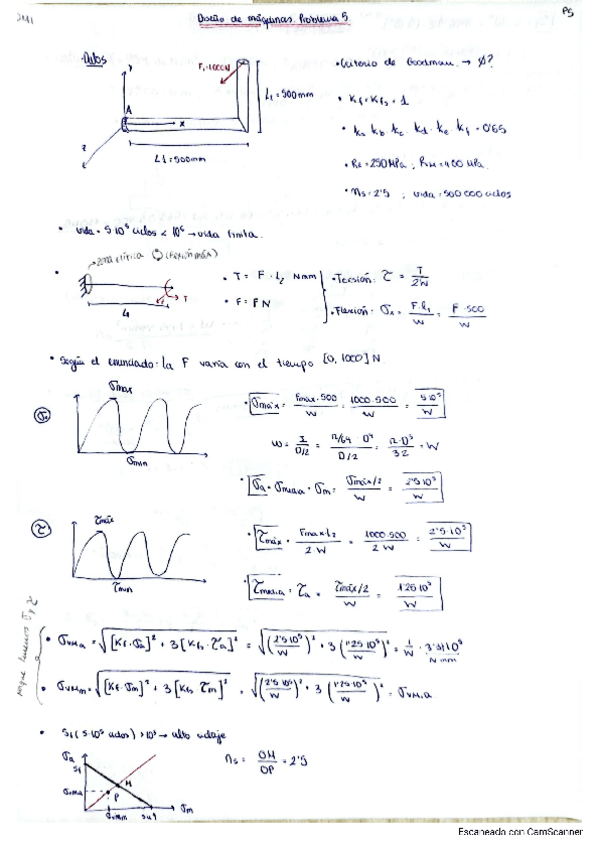 JM1
Diseño de máquinas. Problema 5
P5
· Datos
F, 1000N
L₂ = 500mm
A
y
x
z
L1 = 500mm
· Criterio de Goodman. → Ø?
· Kf = Kfs = 1
· ka kb kc · kd · ke · kf = 0'65
· Re = 250 MPa ; RM = 400 MPa.
· ns = 2'5 ; vida = 500 000 ciclos
· Vida = 5·10⁵ ciclos < 10⁶ → vida finita.
zona crítica (flexión máx)
L1
F
T
· T = F · L₂ Nmm
· F = F N
· Torsión: τ = T / 2W
· Flexión: σx = F·l₁ / W = F·500 / W
· Según el enunciado la F varia con el tiempo [0, 1000] N
σ
σmax
σmin
· σmáx = Fmax·500 / W = 1000·500 / W = 5·10⁵ / W
W = I / D/2 = π/64 · D⁴ / D/2 = π·D³ / 32 = W
· σa = σmedia = σm = σmáx/2 / W = 2'5·10⁵ / W
τ
τmáx
τmin
· τmáx = Fmax·L₂ / 2W = 1000·500 / 2W = 2'5·10⁵ / W
· τmedia = τa = τmáx/2 / W = 1'25·10⁵ / W
porque tenemos σ y τ
· σVMa = √[Kf·σa]² + 3[Kfs·τa]² = √(2'5·10⁵/W)² + 3(1'25·10⁵/W)² = 1/W · 3'31·10⁵ N mm
· σVMm = √[Kf·σm]² + 3[Kfs τm]² = √(2'5·10⁵/W)² + 3(1'25·10⁵/W)² = σVMa
· Sf (5·10⁵ ciclos) > 10³ → alto ciclaje
σa
Sf
σVMa
P
M
σVMm
Sut
σm
ns = OM / OP = 2'5
Escaneado con CamScanner